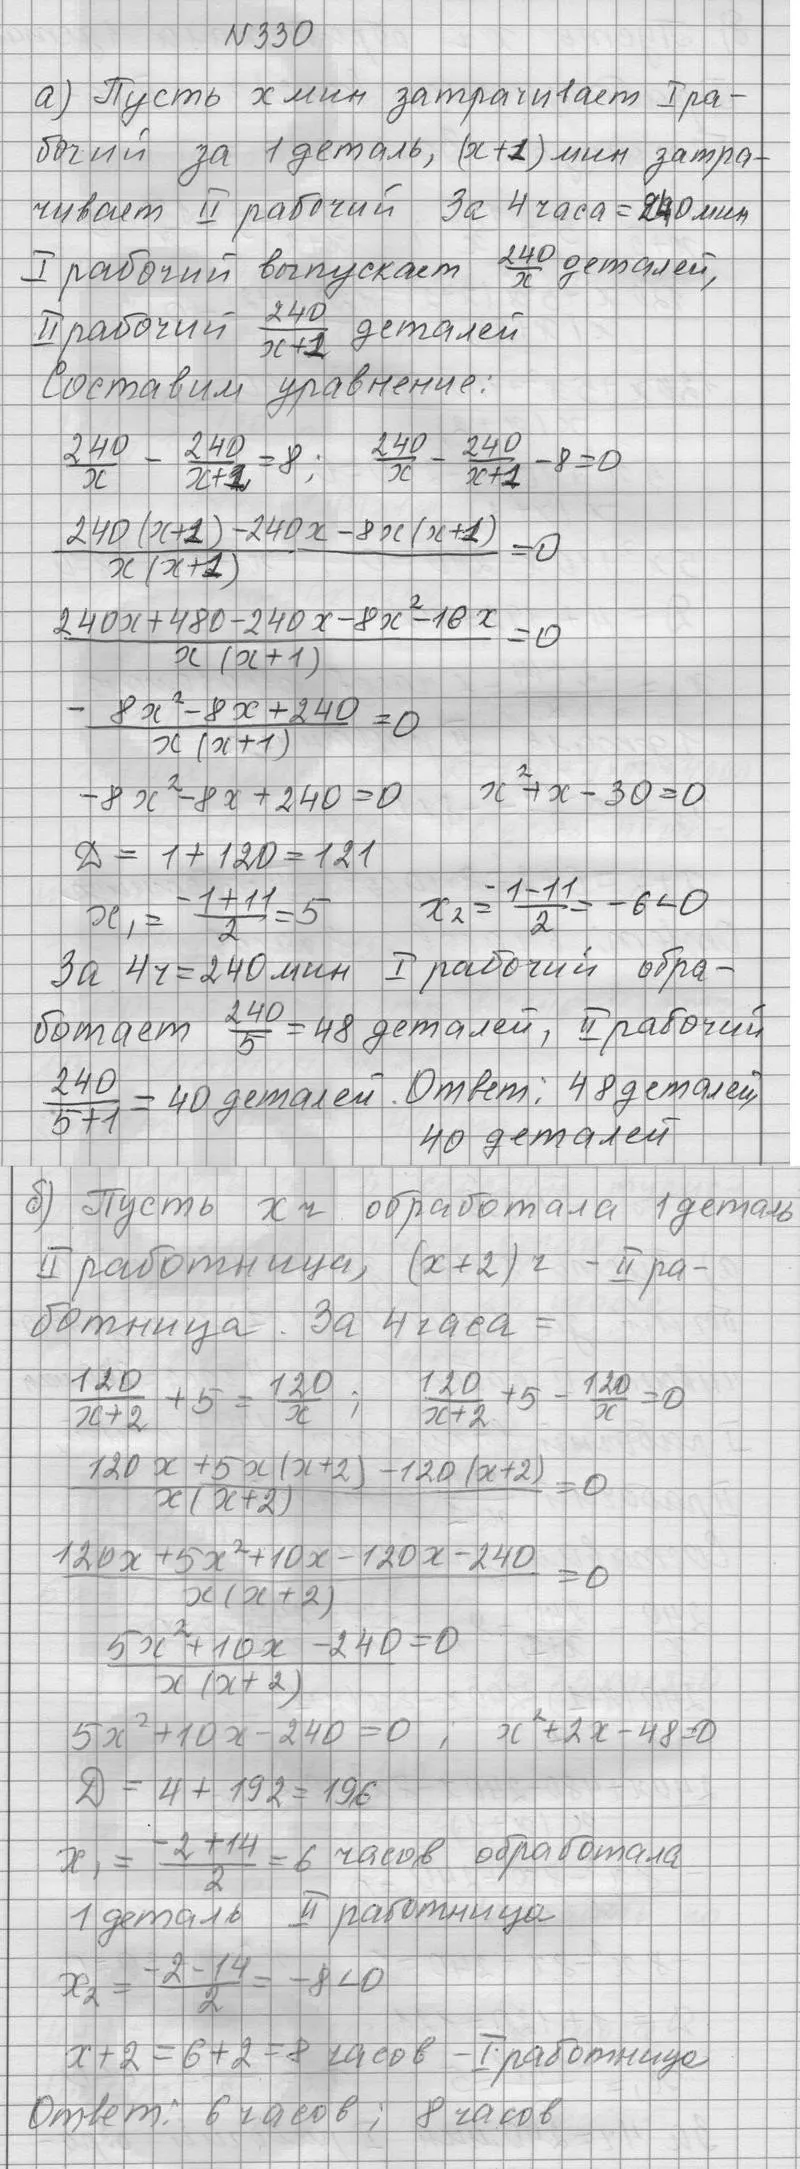 N330
а) Пусть x мин затрачивает I ра-
бочий за 1 деталь, (x+1) мин затра-
чивает II рабочий За 4 часа = 240 мин
I рабочий выпускает 240/x деталей,
II рабочий 240/(x+1) деталей
Составим уравнение:
240/x - 240/(x+1) = 8; 240/x - 240/(x+1) - 8 = 0
(240(x+1) - 240x - 8x(x+1))/(x(x+1)) = 0
(240x + 480 - 240x - 8x² - 16x)/(x(x+1)) = 0
(-8x² - 8x + 240)/(x(x+1)) = 0
-8x² - 8x + 240 = 0 x² + x - 30 = 0
D = 1 + 120 = 121
x₁ = (-1+11)/2 = 5 x₂ = (-1-11)/2 = -6 < 0
За 4ч = 240 мин I рабочий обра-
ботает 240/5 = 48 деталей, II рабочий
240/(5+1) = 40 деталей. Ответ: 48 деталей,
40 деталей
б) Пусть x ч обработала 1 деталь
II работница, (x+2) ч - II ра-
ботница. За 4 часа =
120/(x+2) + 5 = 120/x; 120/(x+2) + 5 - 120/x = 0
(120x + 5x(x+2) - 120(x+2))/(x(x+2)) = 0
(120x + 5x² + 10x - 120x - 240)/(x(x+2)) = 0
(5x² + 10x - 240)/(x(x+2)) = 0
5x² + 10x - 240 = 0; x² + 2x - 48 = 0
D = 4 + 192 = 196
x₁ = (-2+14)/2 = 6 часов обработала
1 деталь II работница
x₂ = (-2-14)/2 = -8 < 0
x + 2 = 6 + 2 = 8 часов - I работница
Ответ: 6 часов; 8 часов